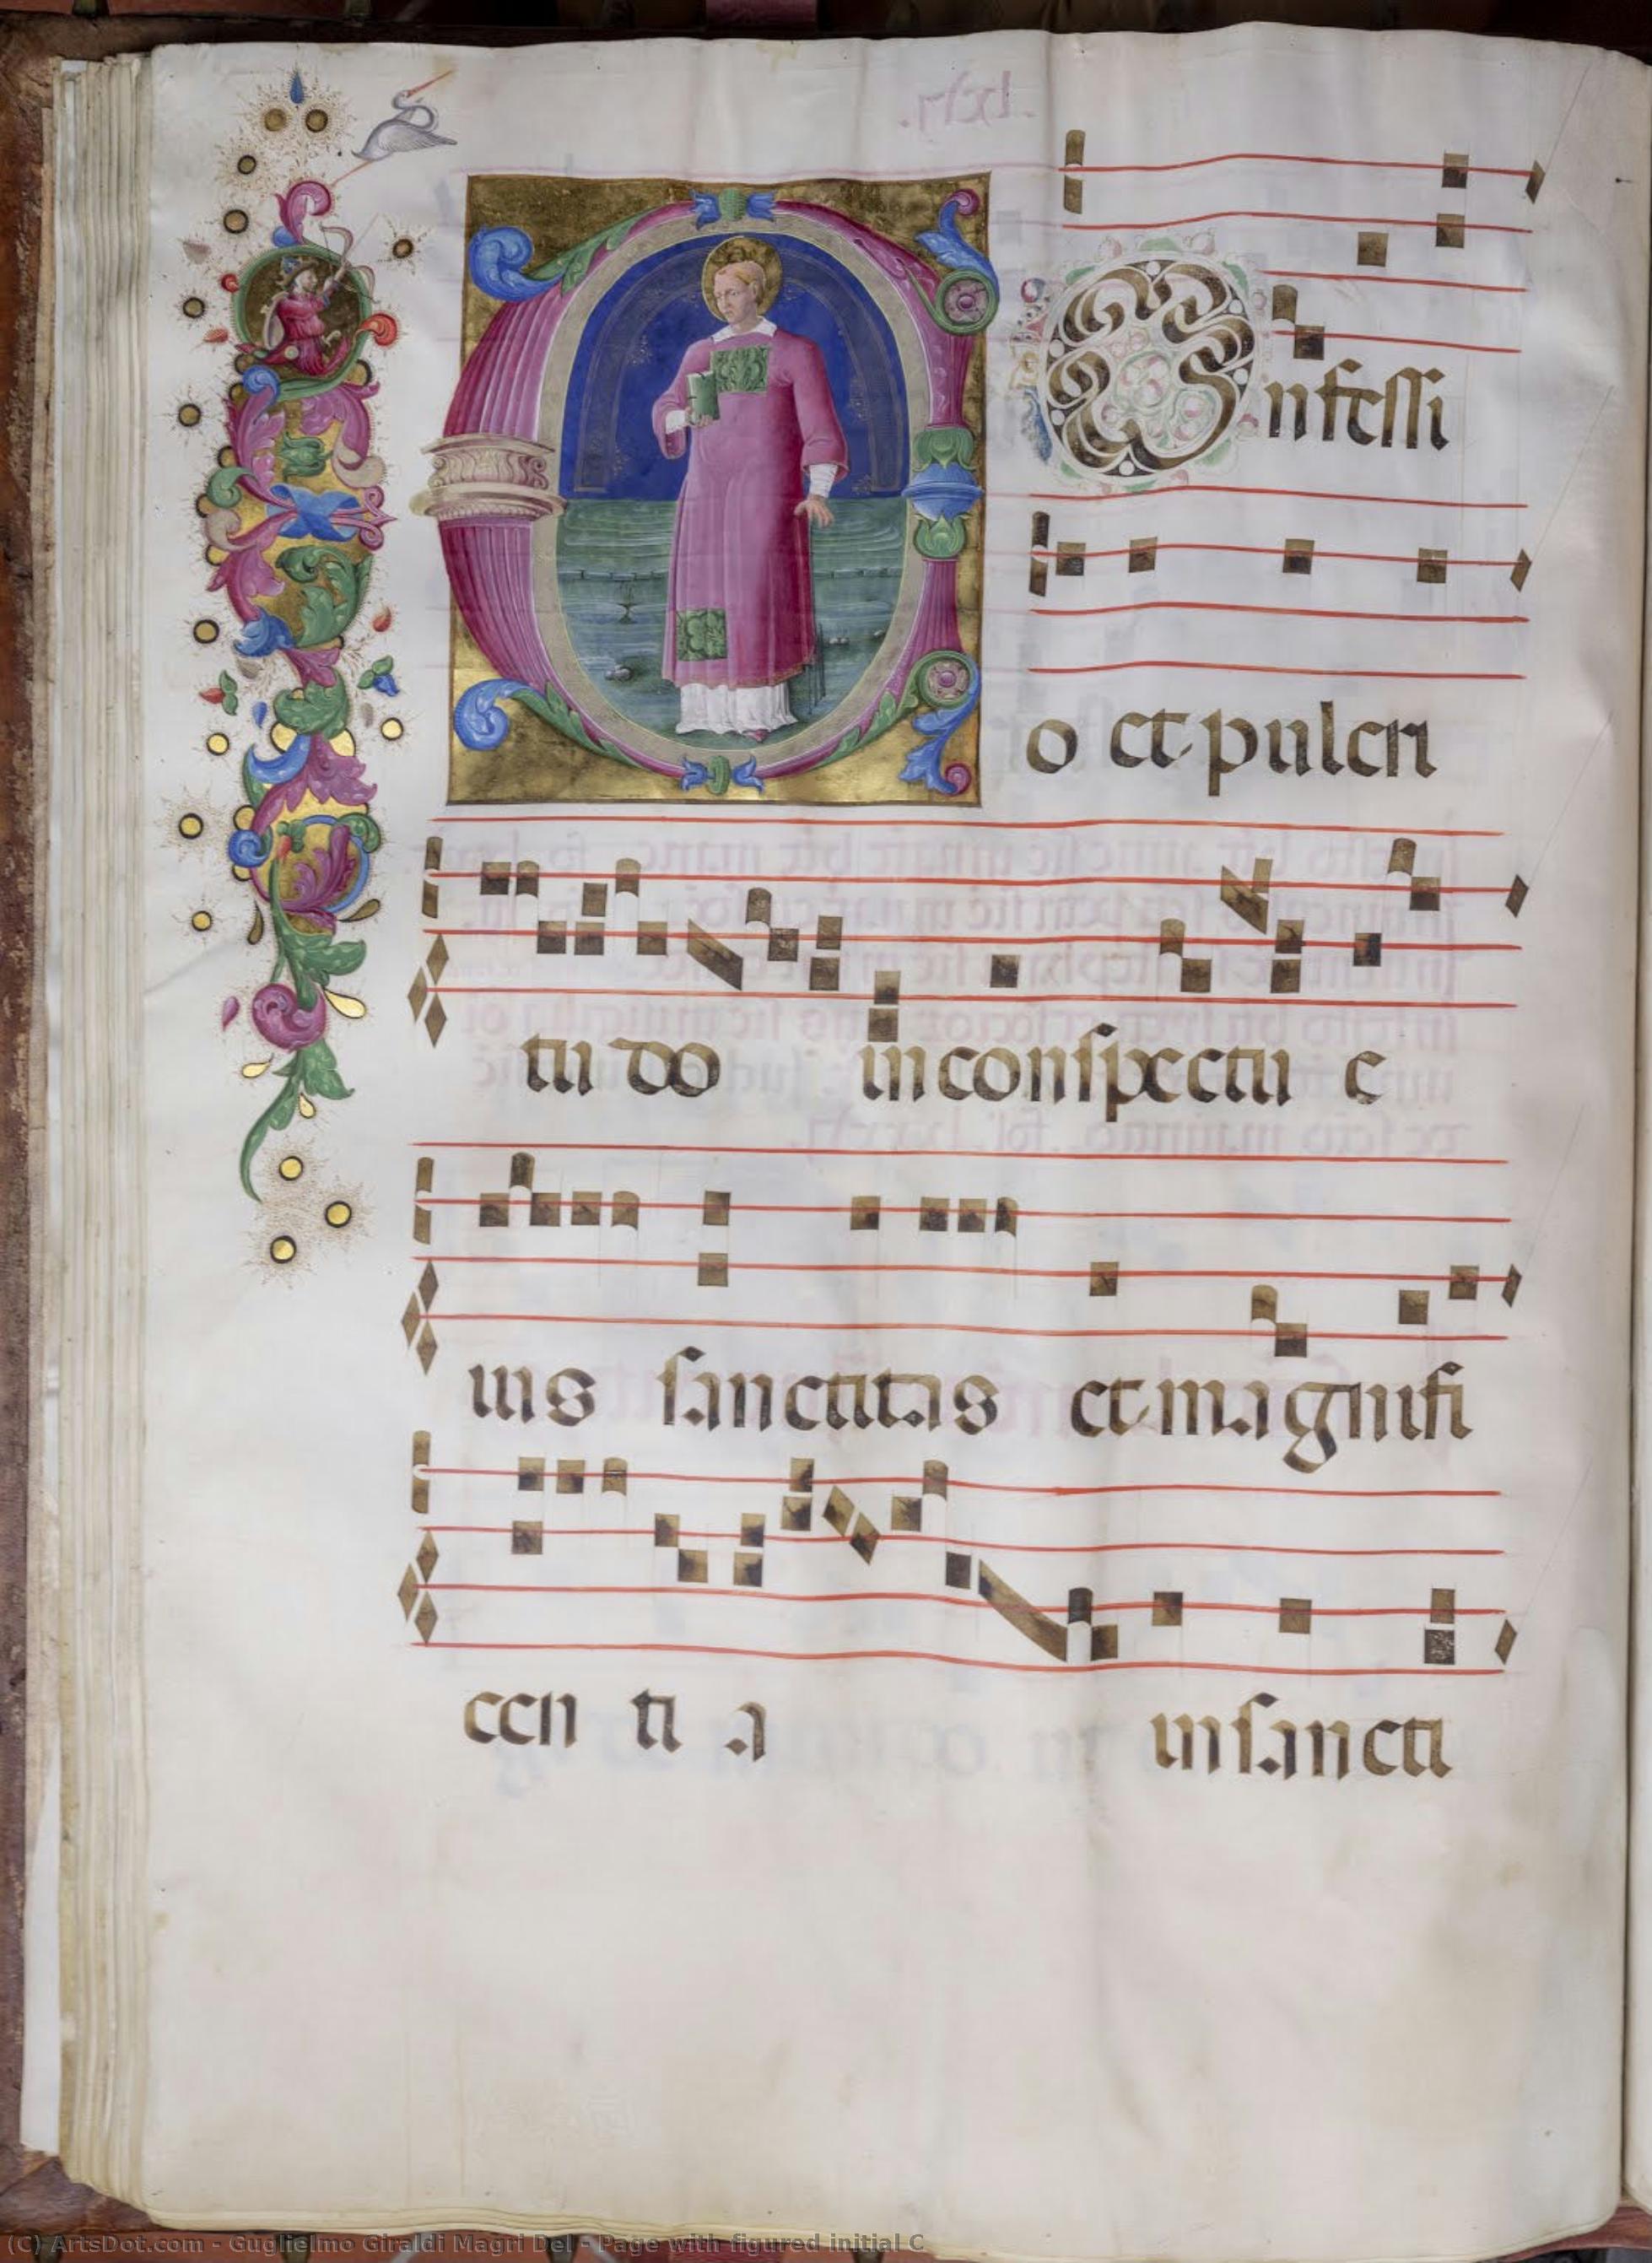 COnfessi
o et pulcri
tu do in conspectu e
ius sanctitas et magnifi
cen ti a in sancti
(C) ArtsDot.com - Guglielmo Giraldi Magri Del - Page with figured initial C